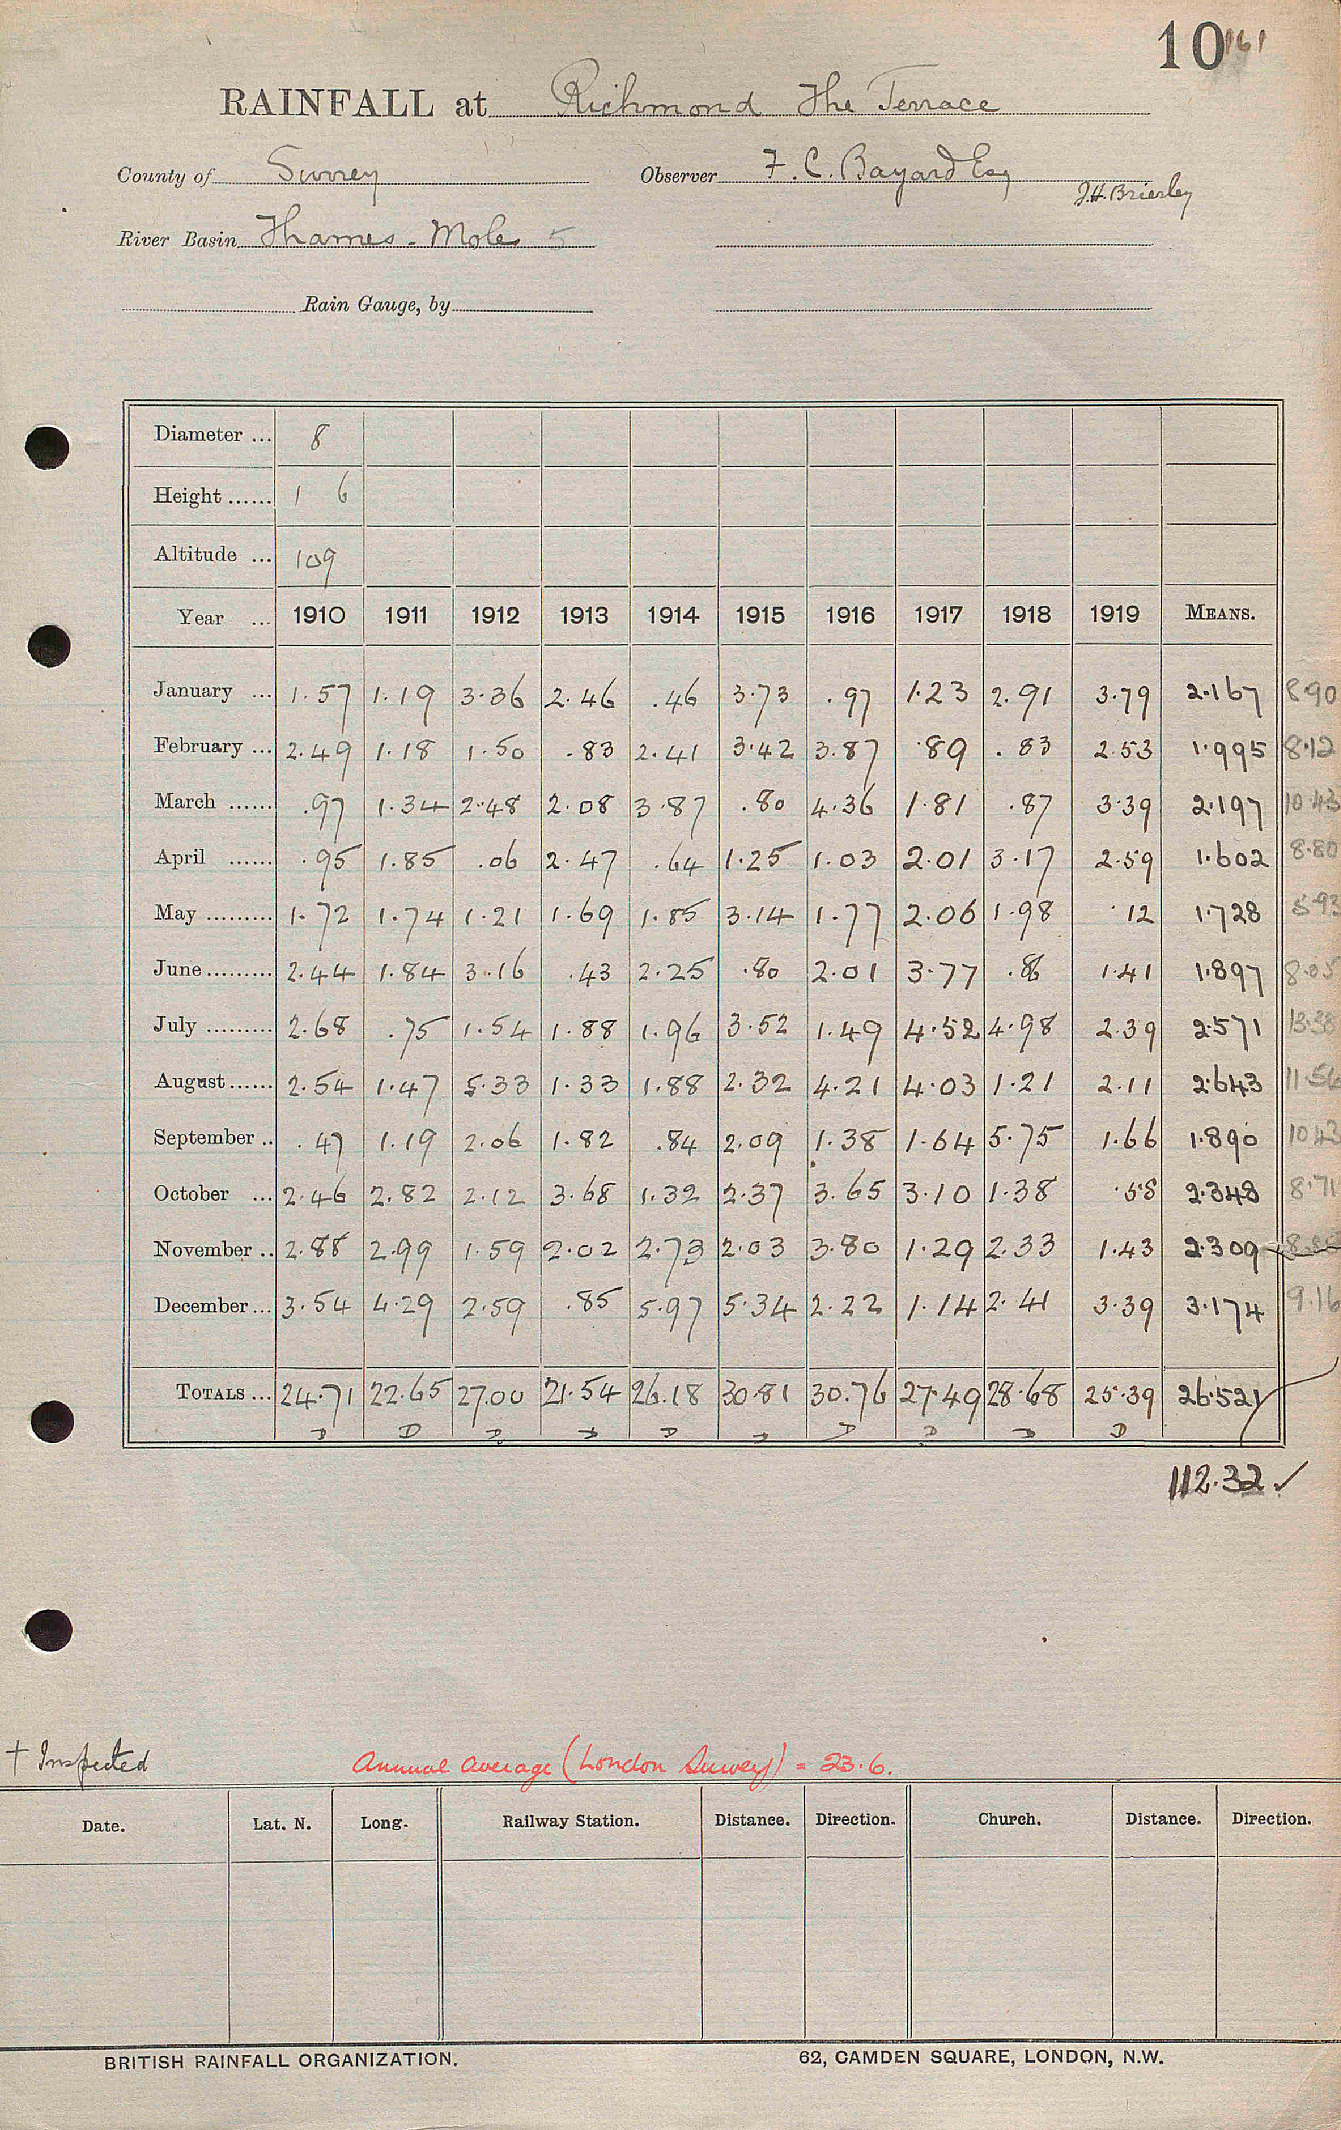 10 161
RAINFALL at Richmond The Terrace
County of Surrey Observer F. C. Bayard Esq
J.H. Brierley
River Basin Thames - Mole 5
Rain Gauge, by
Diameter ... 8
Height ...... 1 6
Altitude ... 109
Year ... 1910 1911 1912 1913 1914 1915 1916 1917 1918 1919 MEANS.
January ... 1.57 1.19 3.36 2.46 .46 3.73 .97 1.23 2.91 3.79 2.167 8.90
February ... 2.49 1.18 1.50 .83 2.41 3.42 3.87 .89 .83 2.53 1.995 8.12
March ...... .97 1.34 2.48 2.08 3.87 .80 4.36 1.81 .87 3.39 2.197 10.43
April ...... .95 1.85 .06 2.47 .64 1.25 1.03 2.01 3.17 2.59 1.602 8.80
May ......... 1.72 1.74 1.21 1.69 1.85 3.14 1.77 2.06 1.98 .12 1.728 5.93
June ......... 2.44 1.84 3.16 .43 2.25 .80 2.01 3.77 .86 1.41 1.897 8.05
July ......... 2.68 .75 1.54 1.88 1.96 3.52 1.49 4.52 4.98 2.39 2.571 13.38
August ...... 2.54 1.47 5.33 1.33 1.88 2.32 4.21 4.03 1.21 2.11 2.643 11.54
September .. .47 1.19 2.06 1.82 .84 2.09 1.38 1.64 5.75 1.66 1.890 10.43
October ... 2.46 2.82 2.12 3.68 1.32 2.37 3.65 3.10 1.38 .58 2.348 8.71
November .. 2.88 2.99 1.59 2.02 2.73 2.03 3.80 1.29 2.33 1.43 2.309
December ... 3.54 4.29 2.59 .85 5.97 5.34 2.22 1.14 2.41 3.39 3.174 9.16
TOTALS ... 24.71 22.65 27.00 21.54 26.18 30.81 30.76 27.49 28.68 25.39 26.521
D D D D D D D D D D
112.32 ✓
† Inspected Annual average (London Survey) = 23.6.
Date. Lat. N. Long. Railway Station. Distance. Direction. Church. Distance. Direction.
BRITISH RAINFALL ORGANIZATION. 62, CAMDEN SQUARE, LONDON, N.W.